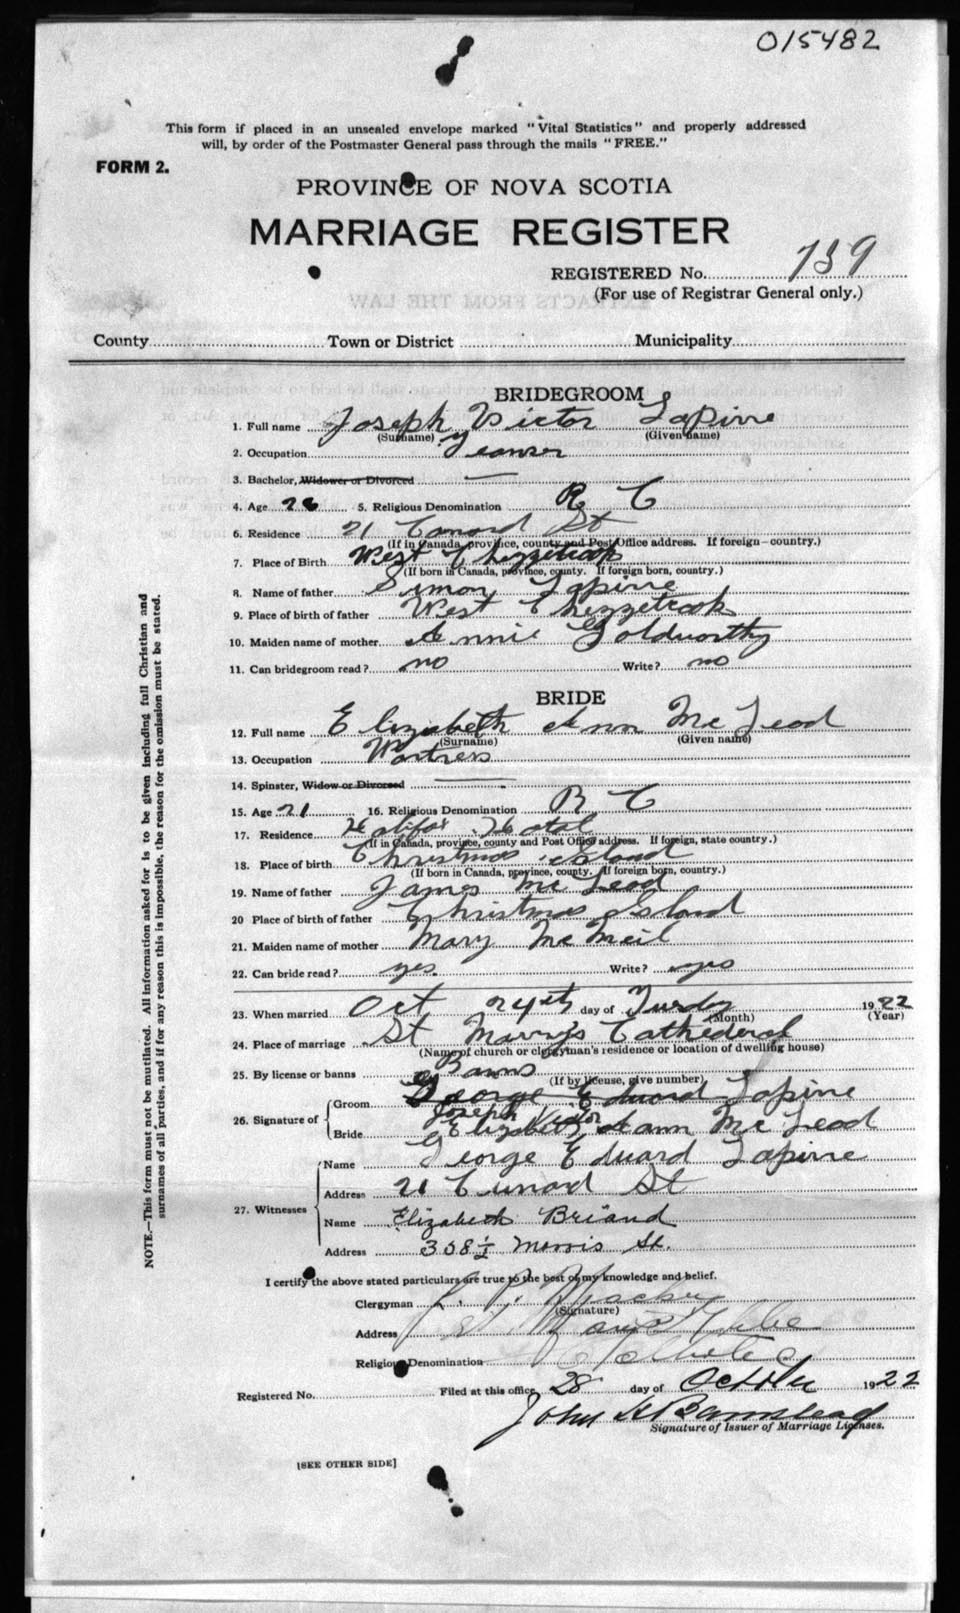 015482
This form if placed in an unsealed envelope marked "Vital Statistics" and properly addressed
will, by order of the Postmaster General pass through the mails "FREE."
FORM 2.
PROVINCE OF NOVA SCOTIA
MARRIAGE REGISTER
REGISTERED No. 739
(For use of Registrar General only.)
County Town or District Municipality
BRIDEGROOM
1. Full name Joseph Victor Lapirre
(Surname) (Given name)
2. Occupation Teamser
3. Bachelor, Widower or Divorced
4. Age 26 5. Religious Denomination R C
6. Residence 21 Conard St
(If in Canada, province, county and Post Office address. If foreign—country.)
7. Place of Birth West Chezzetcook
(If born in Canada, province, county. If foreign born, country.)
8. Name of father Simon Lapirre
9. Place of birth of father West Chezzetcook
10. Maiden name of mother Annie Goldworthy
11. Can bridegroom read? no Write? no
BRIDE
12. Full name Elizabeth Ann Mc Leod
(Surname) (Given name)
13. Occupation Wartress
14. Spinster, Widow or Divorced
15. Age 21 16. Religious Denomination R C
17. Residence Halifax Hotal
(If in Canada, province, county and Post Office address. If foreign, state country.)
18. Place of birth Christmas island
(If born in Canada, province, county. If foreign born, country.)
19. Name of father James Mc Leod
20 Place of birth of father Christmas Island
21. Maiden name of mother Mary Mc Neil
22. Can bride read? yes. Write? yes
23. When married Oct 24th day of 1922
(Month) (Year)
24. Place of marriage St Marrys Cathederal
(Name of church or clergyman's residence or location of dwelling house)
25. By license or banns By Banns
(If by license, give number)
26. Signature of Groom George Eduard Lapirre
Joseph Victor
Bride Elizabeth Ann Mc Leod
27. Witnesses Name George Eduard Lapirre
Address 21 Cunard St
Name Elizabeth Briand
Address 308½ Morris St.
I certify the above stated particulars are true to the best of my knowledge and belief.
Clergyman
(Signature)
Address
Religious Denomination
Registered No. Filed at this office 28 day of October 1922
John H Barnstead
Signature of Issuer of Marriage Licenses.
[SEE OTHER SIDE]
NOTE.—This form must not be mutilated. All information asked for is to be given including full Christian and
surnames of all parties, and if for any reason this is impossible, the reason for the omission must be stated.